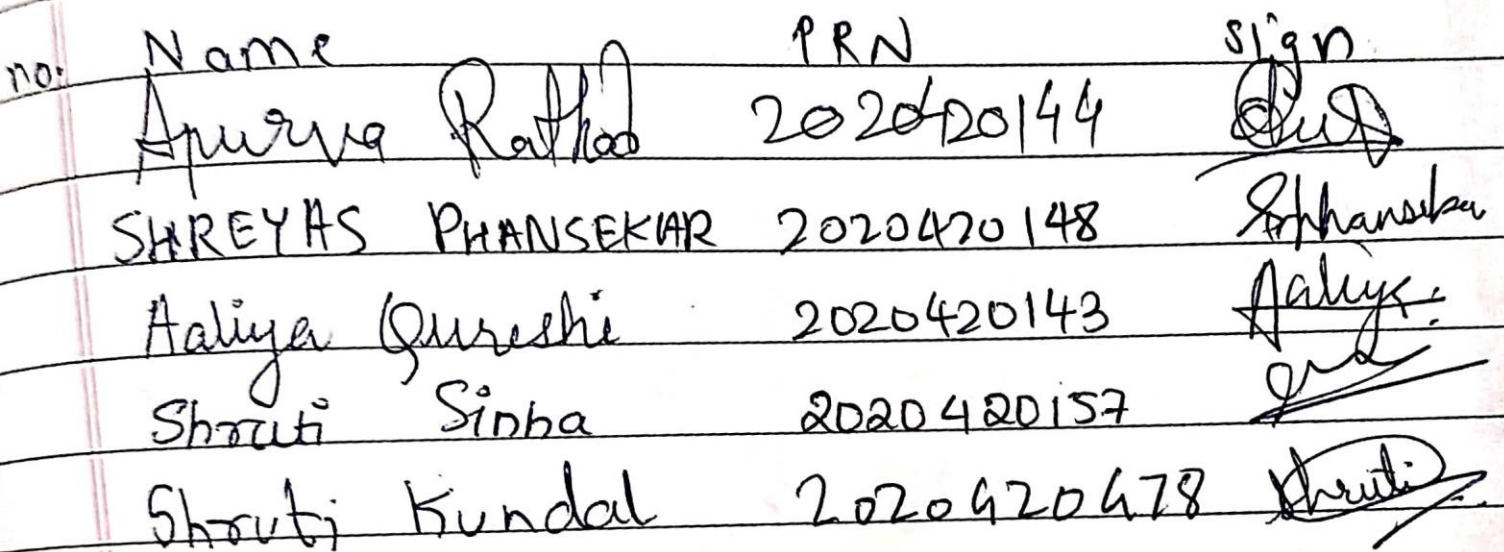 no. Name PRN Sign
Apurva Rathod 2020420144
SHREYAS PHANSEKAR 2020420148 Phansekar
Aaliya Qureshi 2020420143 Aaliya
Shruti Sinha 2020420157
Shruti Kundal 2020420478 Shruti